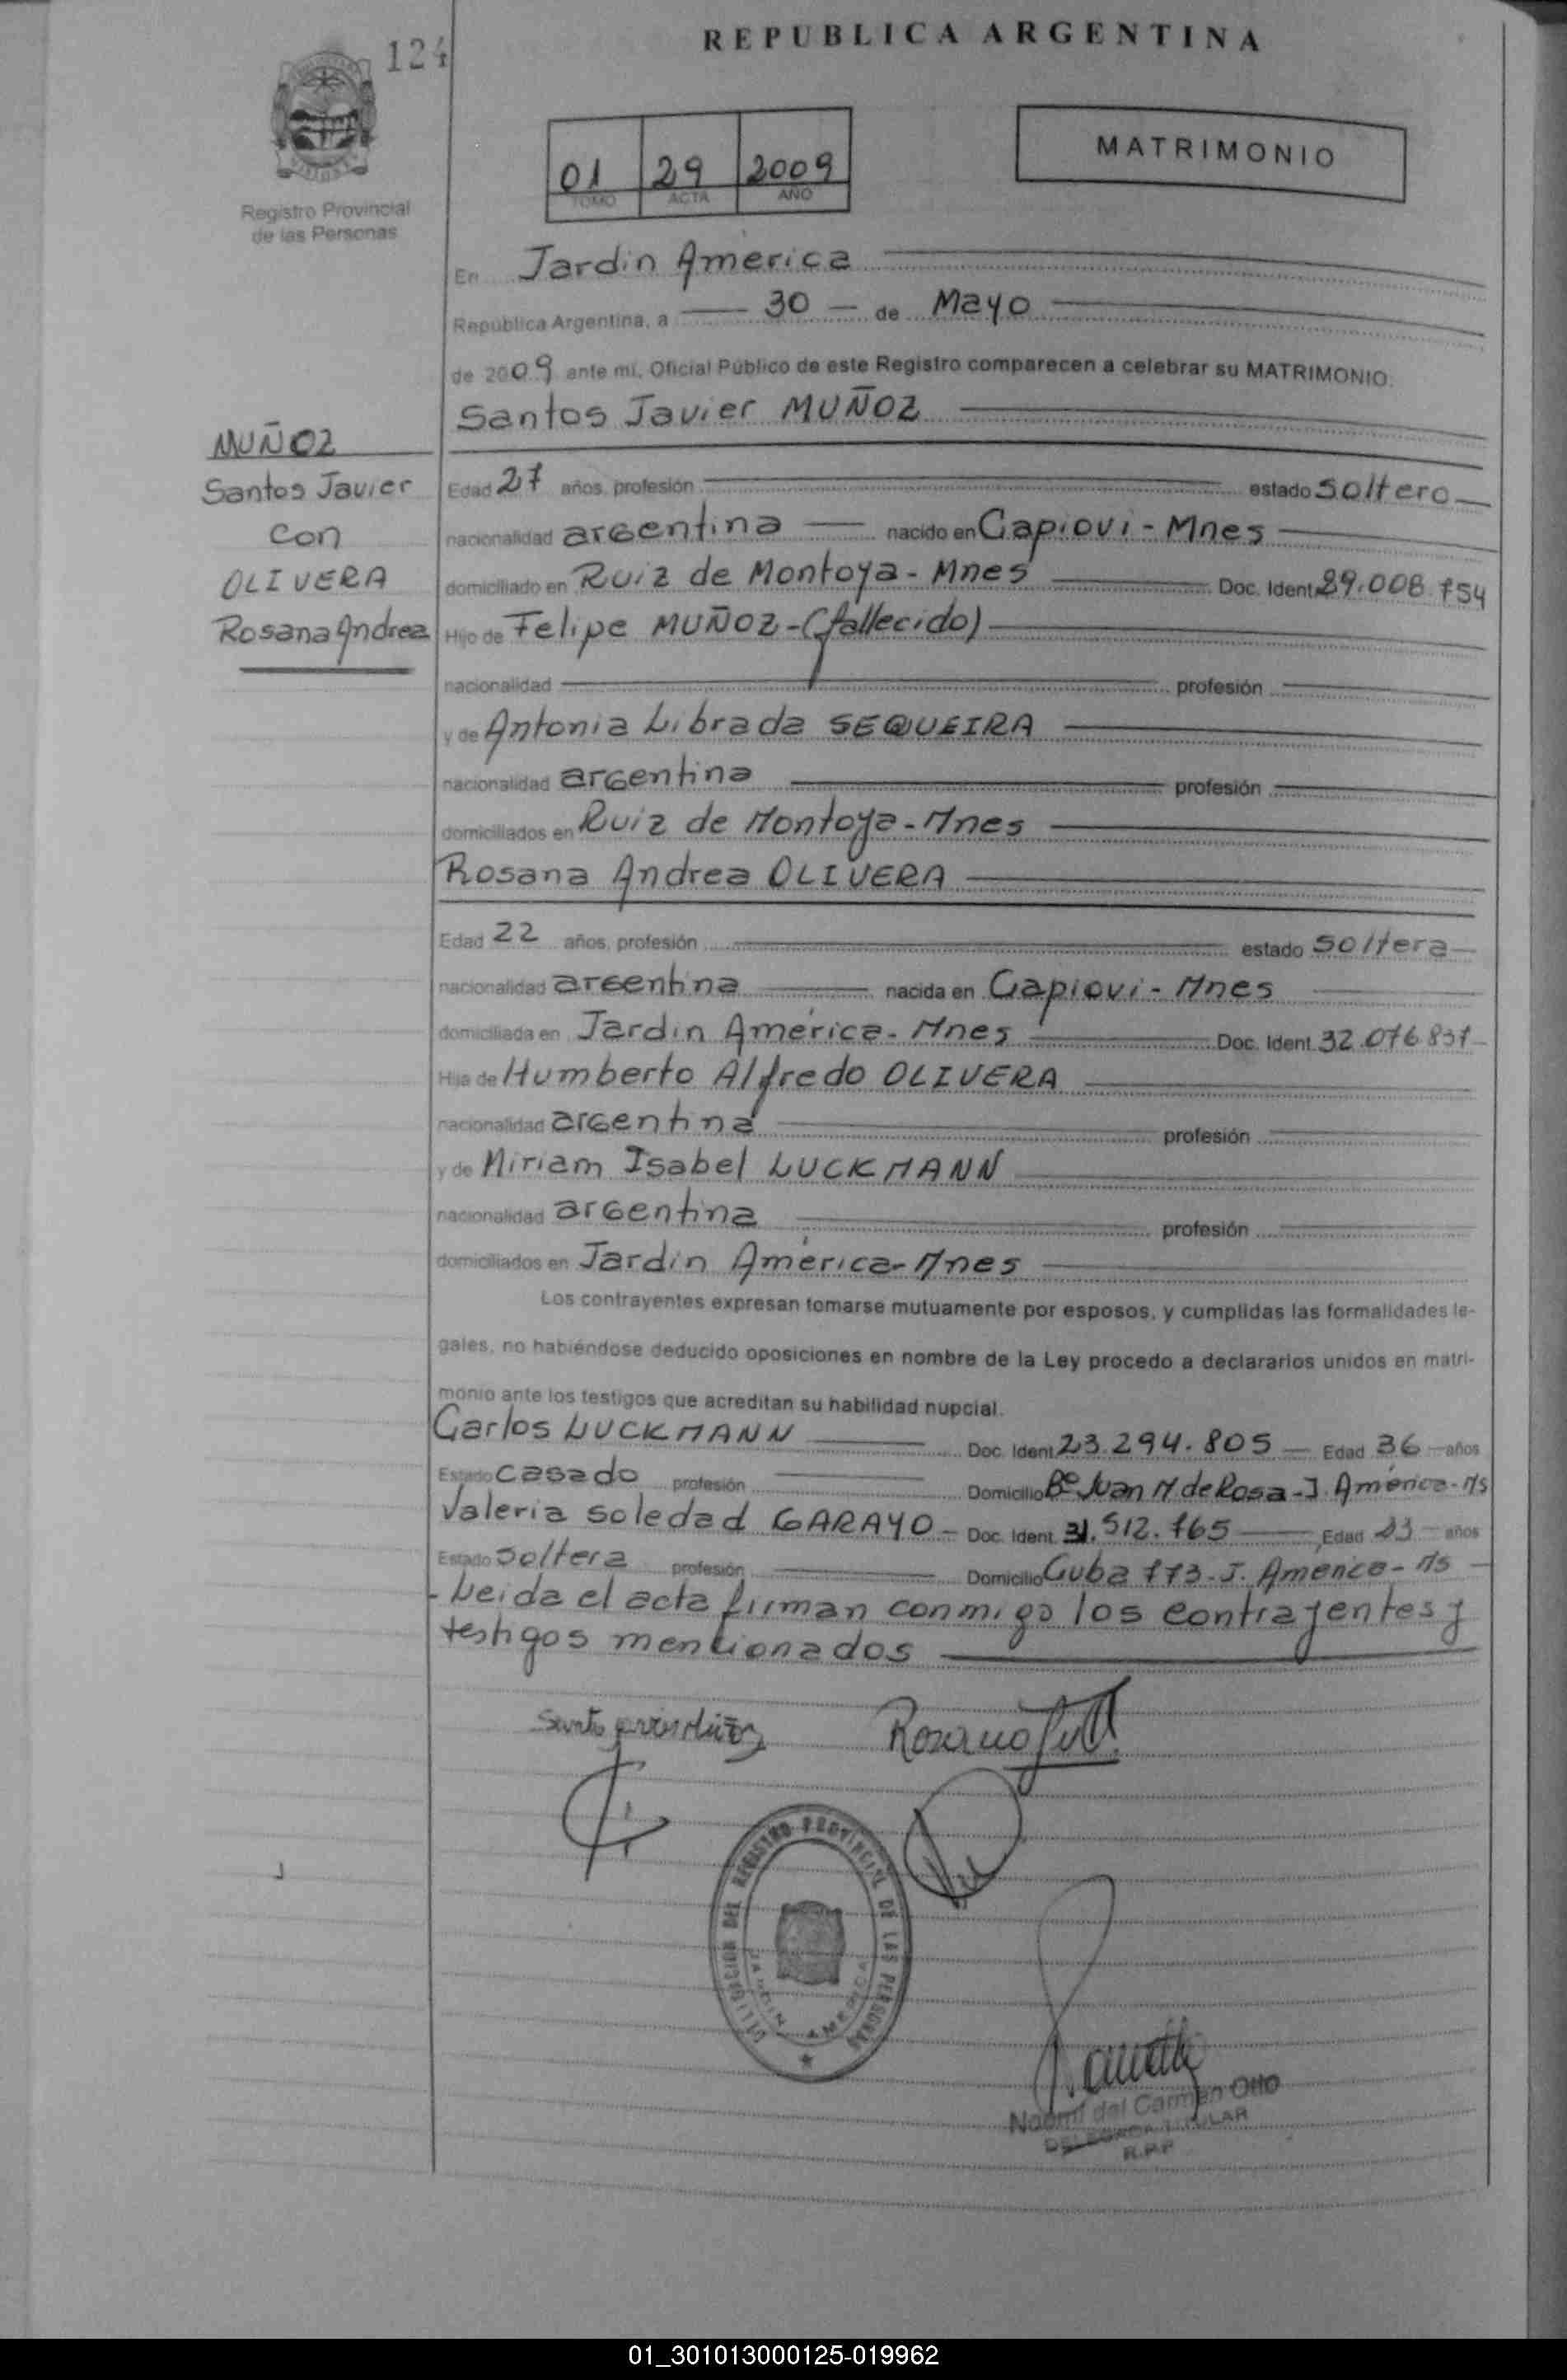 REPUBLICA ARGENTINA
124
Registro Provincial
de las Personas
01 29 2009
TOMO ACTA AÑO
MATRIMONIO
En Jardin America
República Argentina, a 30 de Mayo
de 2009 ante mí, Oficial Público de este Registro comparecen a celebrar su MATRIMONIO.
Santos Javier MUÑOZ
MUÑOZ
Santos Javier
con
OLIVERA
Rosana Andrea
Edad 27 años, profesión estado soltero
nacionalidad argentina nacido en Capiovi - Mnes
domiciliado en Ruiz de Montoya - Mnes Doc. Ident. 29.008.754
Hijo de Felipe MUÑOZ - (fallecido)
nacionalidad profesión
y de Antonia Librada SEQUEIRA
nacionalidad argentina profesión
domiciliados en Ruiz de Montoya - Mnes
Rosana Andrea OLIVERA
Edad 22 años, profesión estado soltera
nacionalidad argentina nacida en Capiovi - Mnes
domiciliada en Jardin América - Mnes Doc. Ident. 32.076.837
Hija de Humberto Alfredo OLIVERA
nacionalidad argentina profesión
y de Miriam Isabel LUCKMANN
nacionalidad argentina profesión
domiciliados en Jardin América - Mnes
Los contrayentes expresan tomarse mutuamente por esposos, y cumplidas las formalidades le-
gales, no habiéndose deducido oposiciones en nombre de la Ley procedo a declararlos unidos en matri-
monio ante los testigos que acreditan su habilidad nupcial.
Carlos LUCKMANN Doc. Ident. 23.294.805 Edad 36 años
Estado casado profesión Domicilio Bº Juan M. de Rosa - J. América - Ms
Valeria Soledad GARAYO - Doc. Ident. 31.512.765 Edad 23 años
Estado soltera profesión Domicilio Cuba 773 - J. America - Ms
- Leida el acta firman conmigo los contrayentes y
testigos mencionados
DELEGACION DEL REGISTRO PROVINCIAL DE LAS PERSONAS
JARDIN AMERICA
Noemí del Carmen Otto
DELEGADA TITULAR
R.P.P
01_301013000125-019962